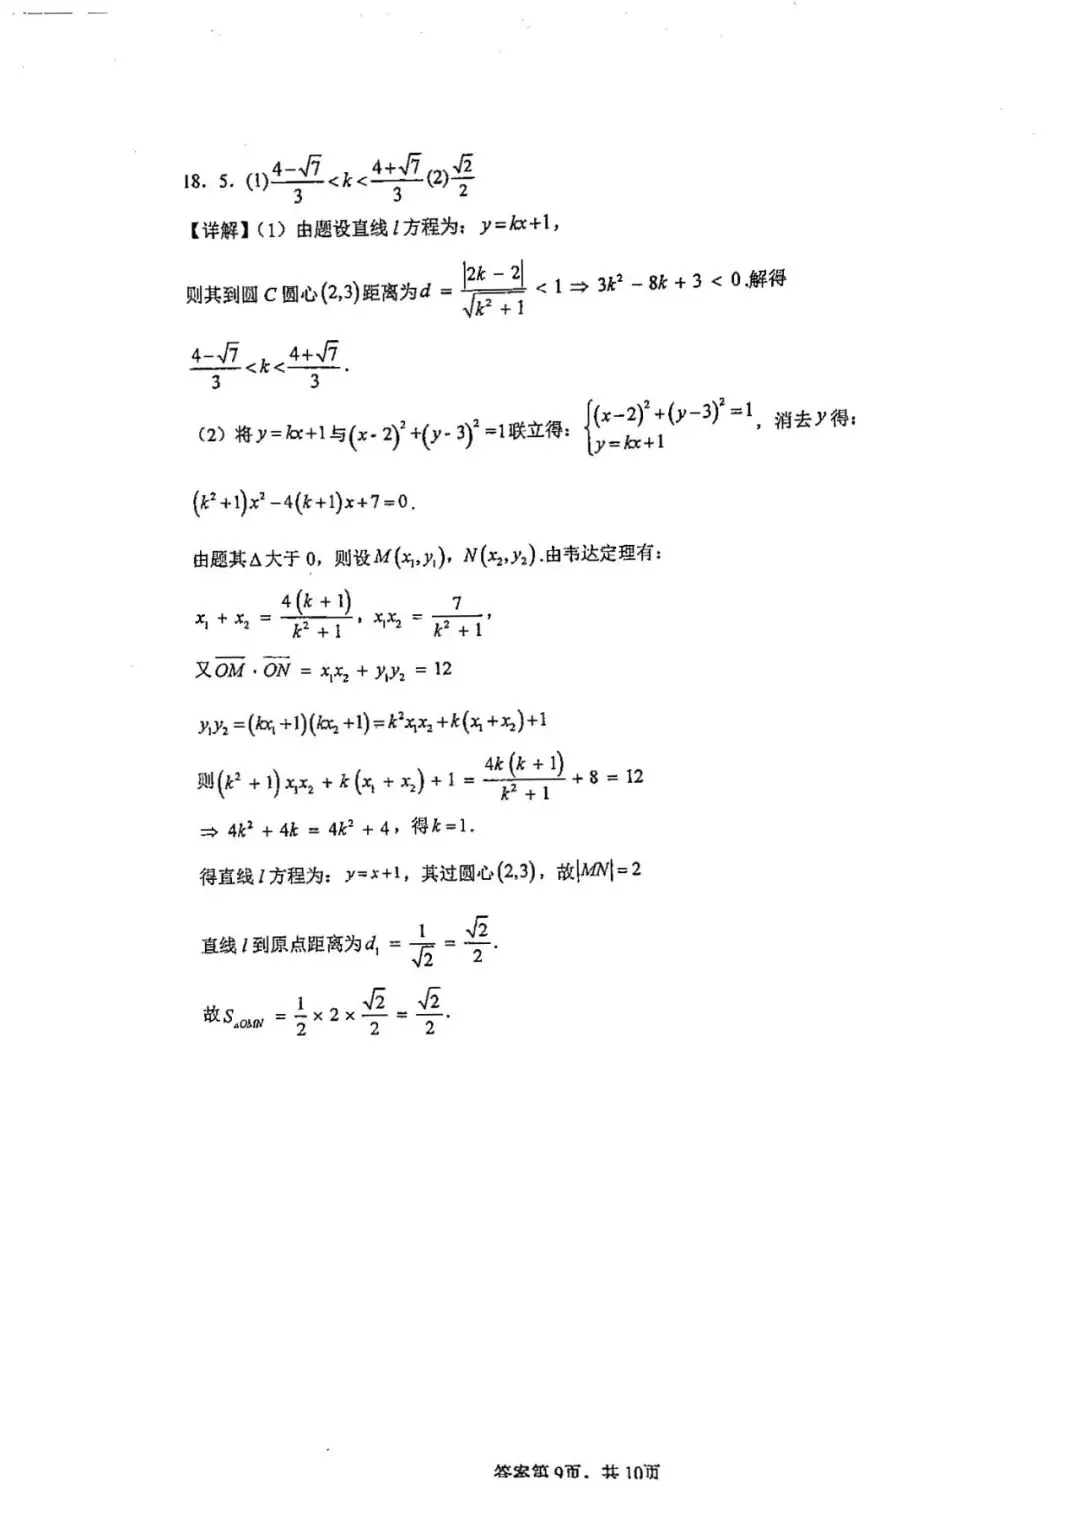 18. 5. (1) $\frac{4-\sqrt{7}}{3}<k<\frac{4+\sqrt{7}}{3}$ (2) $\frac{\sqrt{2}}{2}$
【详解】(1) 由题设直线 $l$ 方程为: $y=kx+1$,
则其到圆 $C$ 圆心 $(2,3)$ 距离为 $d=\frac{|2k-2|}{\sqrt{k^2+1}}<1\Rightarrow 3k^2-8k+3<0$.解得
$\frac{4-\sqrt{7}}{3}<k<\frac{4+\sqrt{7}}{3}$.
(2) 将 $y=kx+1$ 与 $(x-2)^2+(y-3)^2=1$ 联立得: $\begin{cases}(x-2)^2+(y-3)^2=1\\y=kx+1\end{cases}$, 消去 $y$ 得:
$(k^2+1)x^2-4(k+1)x+7=0$.
由题其 $\Delta$ 大于 0, 则设 $M(x_1,y_1)$, $N(x_2,y_2)$.由韦达定理有:
$x_1+x_2=\frac{4(k+1)}{k^2+1}$, $x_1x_2=\frac{7}{k^2+1}$,
又 $\overline{OM}\cdot\overline{ON}=x_1x_2+y_1y_2=12$
$y_1y_2=(kx_1+1)(kx_2+1)=k^2x_1x_2+k(x_1+x_2)+1$
则 $(k^2+1)x_1x_2+k(x_1+x_2)+1=\frac{4k(k+1)}{k^2+1}+8=12$
$\Rightarrow 4k^2+4k=4k^2+4$, 得 $k=1$.
得直线 $l$ 方程为: $y=x+1$, 其过圆心 $(2,3)$, 故 $|MN|=2$
直线 $l$ 到原点距离为 $d_1=\frac{1}{\sqrt{2}}=\frac{\sqrt{2}}{2}$.
故 $S_{\triangle OMN}=\frac{1}{2}\times 2\times\frac{\sqrt{2}}{2}=\frac{\sqrt{2}}{2}$.
答案第 9页, 共 10页